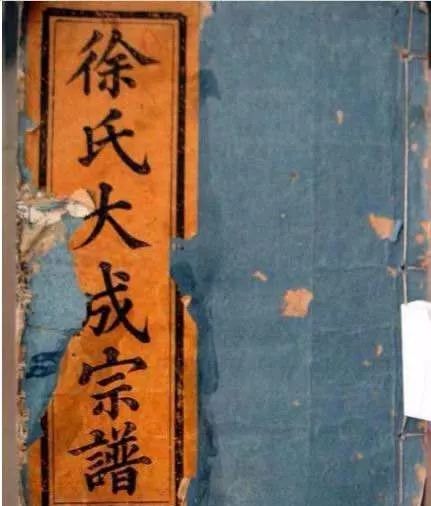 徐氏大成宗譜